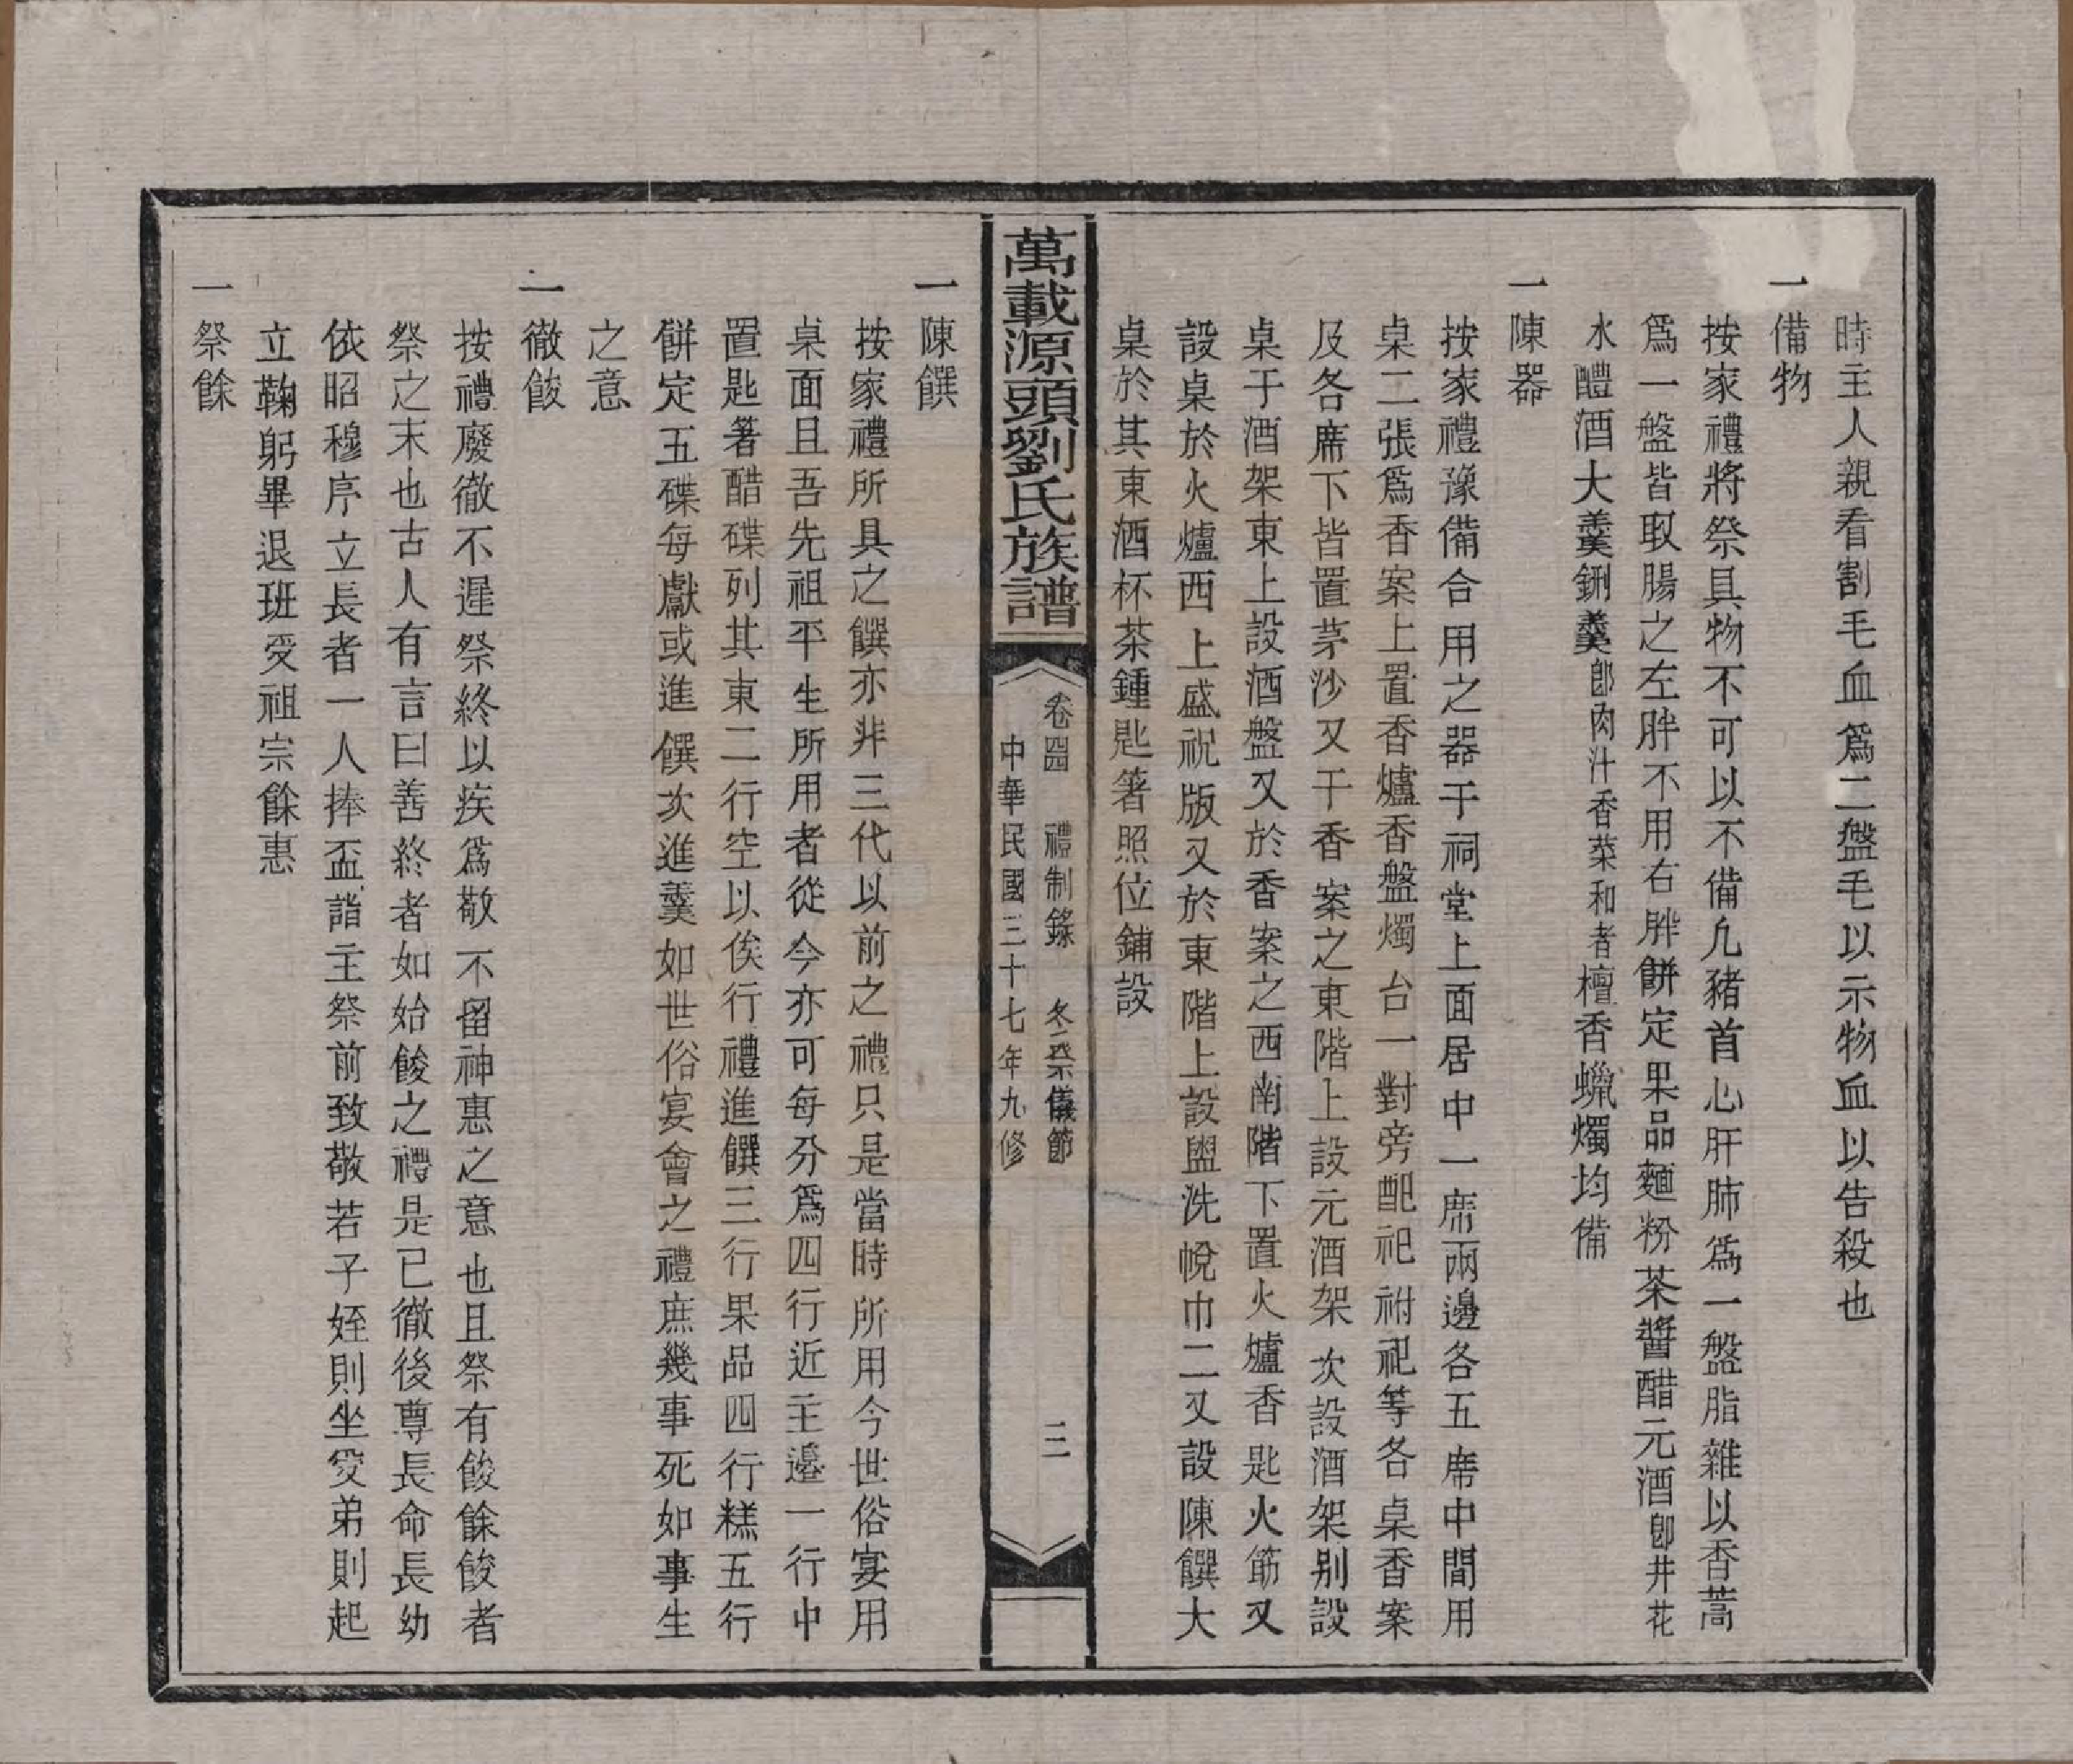 時主人親看割毛血爲二盤毛以示物血以告殺也
一備物
按家禮將祭具物不可以不備凢豬首心肝肺爲一盤脂雜以香蒿
爲一盤皆取腸之左胖不用右胖餅定果品麵粉茶醬醋元酒卽井花
水醴酒大羹鉶羹卽肉汁香菜和者檀香蠟燭均備
一陳器
按家禮豫備合用之器于祠堂上面居中一席兩邊各五席中間用
桌二張爲香案上置香爐香盤燭台一對旁配祀祔祀等各桌香案
及各席下皆置茅沙又于香案之東階上設元酒架次設酒架别設
桌于酒架東上設酒盤又於香案之西南階下置火爐香匙火筯又
設桌於火爐西上盛祝版又於東階上設盥洗帨巾二又設陳饌大
桌於其東酒杯茶鍾匙箸照位鋪設
萬載源頭劉氏族譜
卷四 禮制錄 冬祭儀節 三
中華民國三十七年九修
一陳饌
按家禮所具之饌亦非三代以前之禮只是當時所用今世俗宴用
桌面且吾先祖平生所用者從今亦可每分爲四行近主邊一行中
置匙箸醋碟列其東二行空以俟行禮進饌三行果品四行糕五行
餅定五碟每獻或進饌次進羹如世俗宴會之禮庶幾事死如事生
之意
一徹餕
按禮廢徹不遲祭終以疾爲敬不留神惠之意也且祭有餕餘餕者
祭之末也古人有言曰善終者如始餕之禮是已徹後尊長命長幼
依昭穆序立長者一人捧盃詣主祭前致敬若子姪則坐受弟則起
立鞠躬畢退班受祖宗餘惠
一祭餘